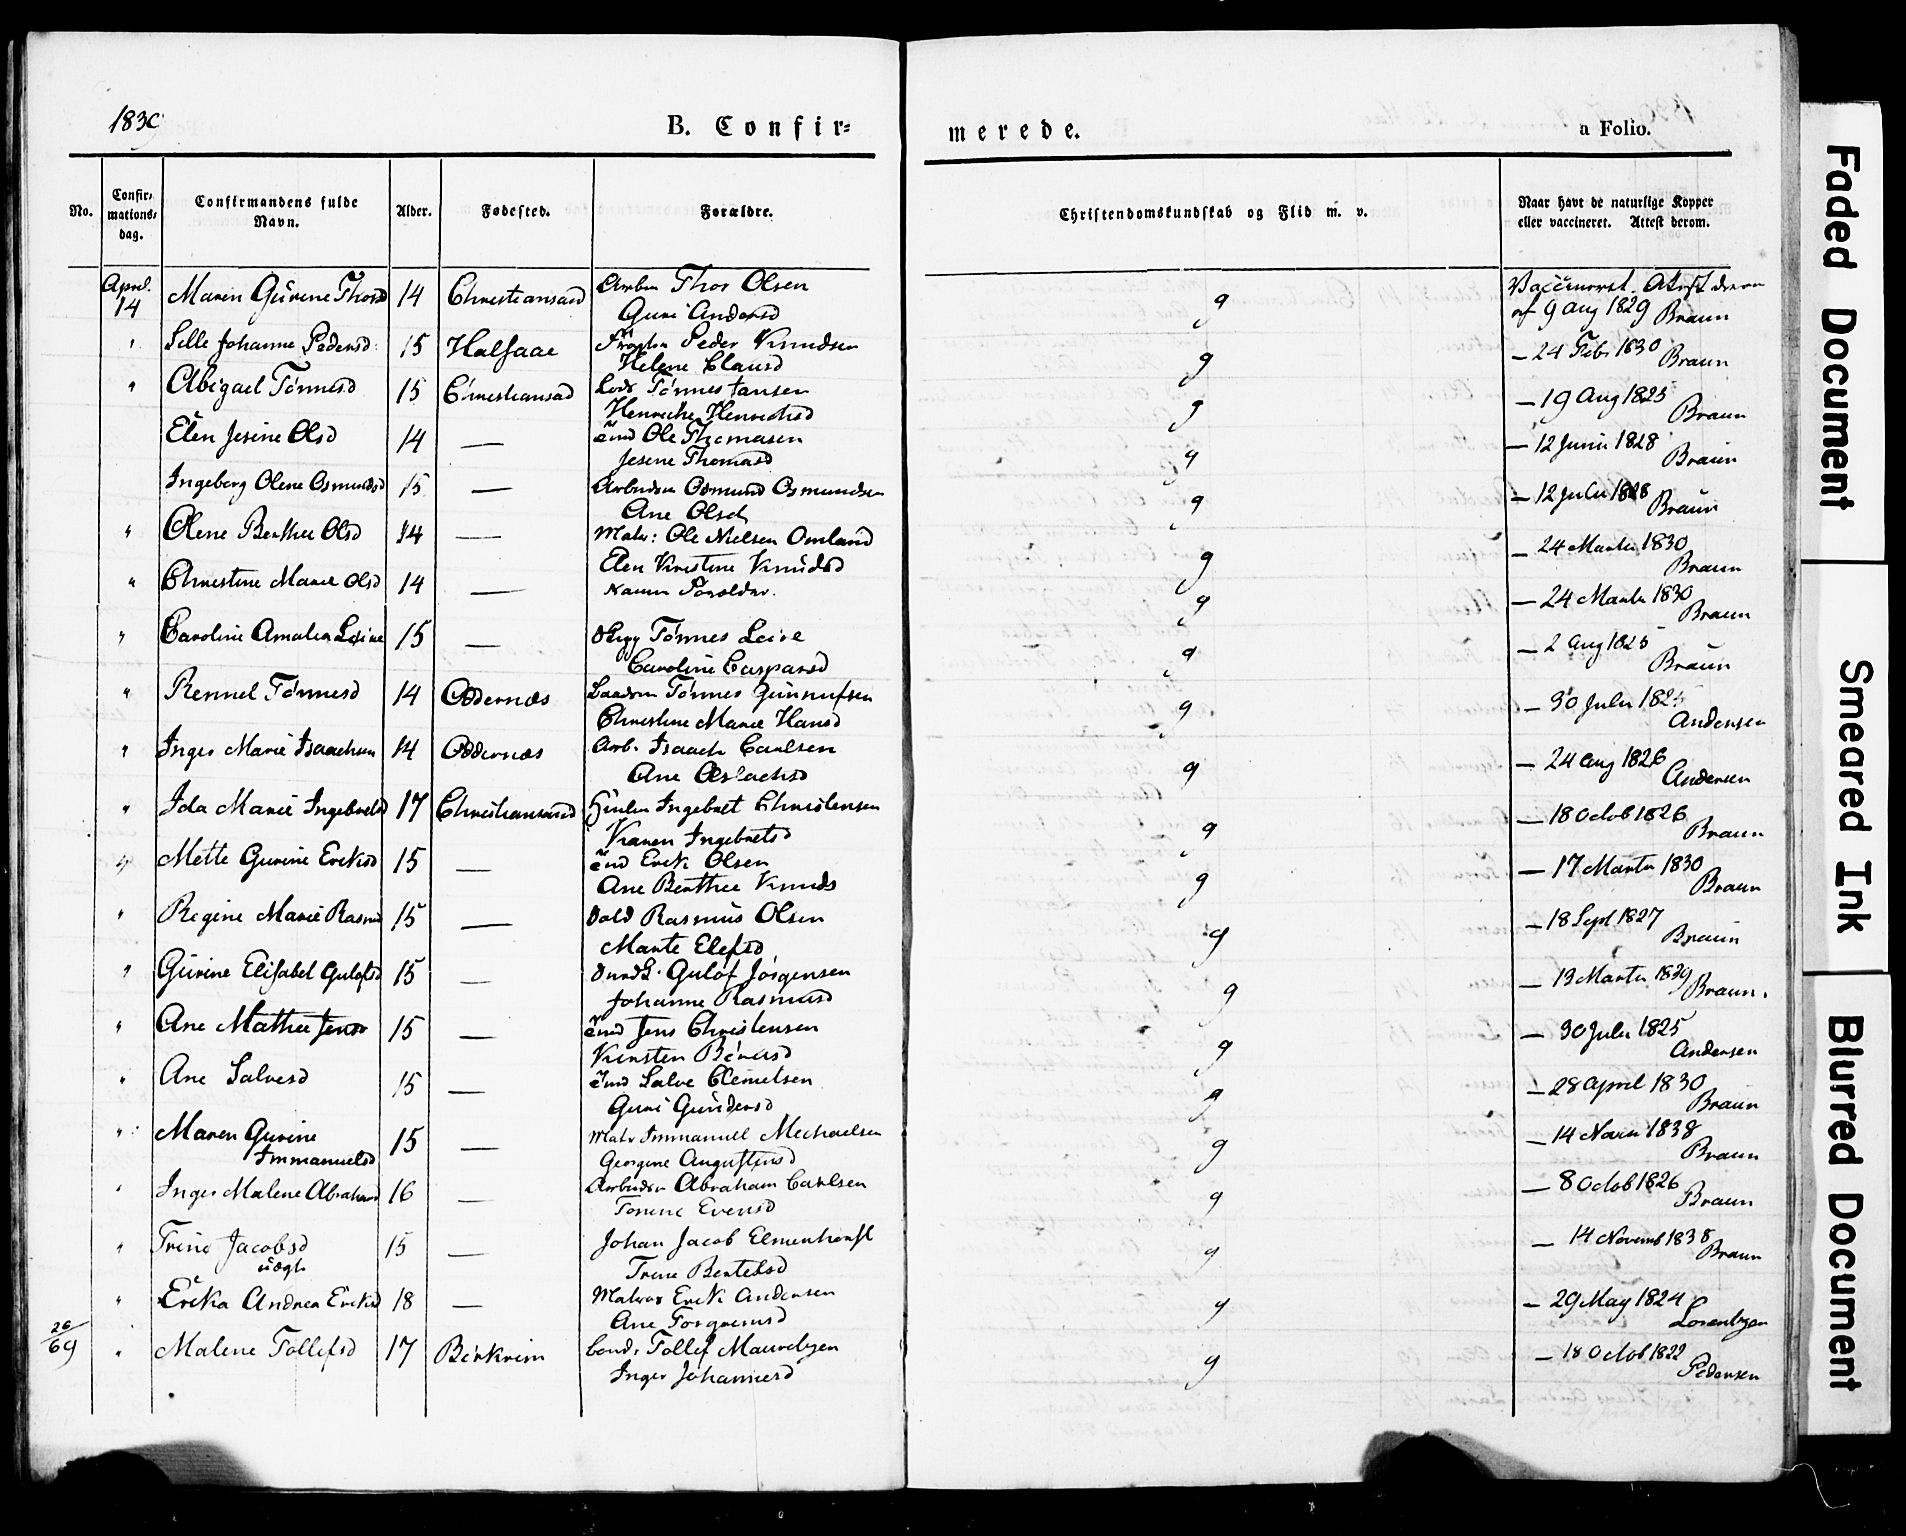 1839
B. Confir=
merede.
a Folio.
No.
Confir=
mations=
dag.
Confirmandens fulde
Navn.
Alder.
Fødested.
Forældre.
Christendomskundskab og Flid m. v.
Naar havt de naturlige Kopper
eller vaccineret. Attest derom.
April
14 Maren Gurine Thorsd 14 Christiansand Thor Olsen g
Guri Andersd af 9 Aug 1829 Braun
" Johanne Pedersd 15 Peder Knudsen g — 24 Feb 1830
Helene Clausd Braun
" Abigael Tønnesd 15 Christiansand Tønnes Jansen g — 19 Aug 1825
Henriche Henrichsd Braun
Elen Jesine Olsd 14 — Ole Thomasen g — 12 Junii 1828
Jesine Thomasd Braun
Ingeborg Olene Osmundsd 15 — Osmund Osmundsen g — 12 Juli 1828
Ane Olsd Braun
" Olene Berthee Olsd 14 — Matr: Ole Nielsen Omland g — 24 Marts 1830
Elen Kirstine Knudsd Braun
" Christine Marie Olsd 14 — g — 24 Marts 1830
Braun
" Caroline Amalia 15 — Tønnes g — 2 Aug 1825
Caroline Caspersd Braun
" Tønnesd 14 Oddernæs Tønnes g — 30 Juli
Christine Marie Hansd Andersen
" Inger Marie Isaachsen 14 Oddernæs Arb. Isaach Carlsen g — 24 Aug 1826
Ane Aslachsd Andersen
" Ida Marie Ingebretsd 17 Christiansand Ingebret Christensen g — 18 Octob 1826
Karen Ingebretsd Braun
" Mette Gurine Eriksd 15 — Erik Olsen g — 17 Marts 1830
Ane Berthee Knuds Braun
" Regine Marie Rasmd 15 — Rasmus Olsen g — 18 Sept 1827
Marte Elefsd Braun
" Gurine Elisabet Gulofsd 15 — Gulof Jørgensen g — 13 Marts 1839
Johanne Rasmusd Braun.
" Ane Mathee 15 — Jens Christensen g — 30 Juli 1825
Kirsten Andersen
" Ane Salvesd 15 — Salve Clemetsen g — 28 April 1830
Guri Gundersd Braun
" Maren Gurine 15 — Matr Immanuel Michaelsen g — 14 Novem 1838
Immanuelsd Georgine Augustinsd Braun
" Inger Malene Abrahamsd 16 — Abraham Carlsen g — 8 Octob 1826
Tonine Evensd Braun
" Trine Jacobsd 15 — Johan Jacob Elmenhorst g — 14 Novemb 1838
uægte Trine Bertelsd Braun
" Erika Andrea Eriksd 18 — Matros Erik Andersen g — 29 May 1824
Ane Torgiersd Lorentzen
26/69 " Malene Tollefsd 17 Birkrem Tollef g — 18 Octob 1822
Inger Johannesd Pedersen
Faded Document
Smeared Ink
Blurred Document